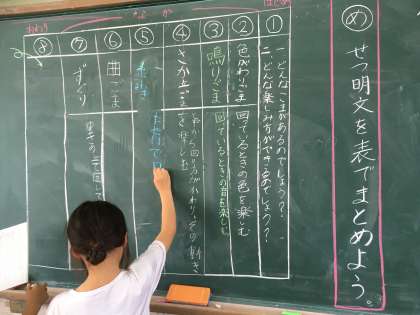 め せつ明文を表でまとめよう。
はじめ
なか
おわり
①
一、どんなこまがあるのでしょう？
二、どんな楽しみ方ができるのでしょう？
②
色がわりごま
回っているときの色を楽しむ
③
鳴りごま
回っているときの音を楽しむ
④
さか立ちごま
と中から回り方がかわり、その動きを楽しむ
⑤
⑥
曲ごま
⑦
ずぐり
⑧